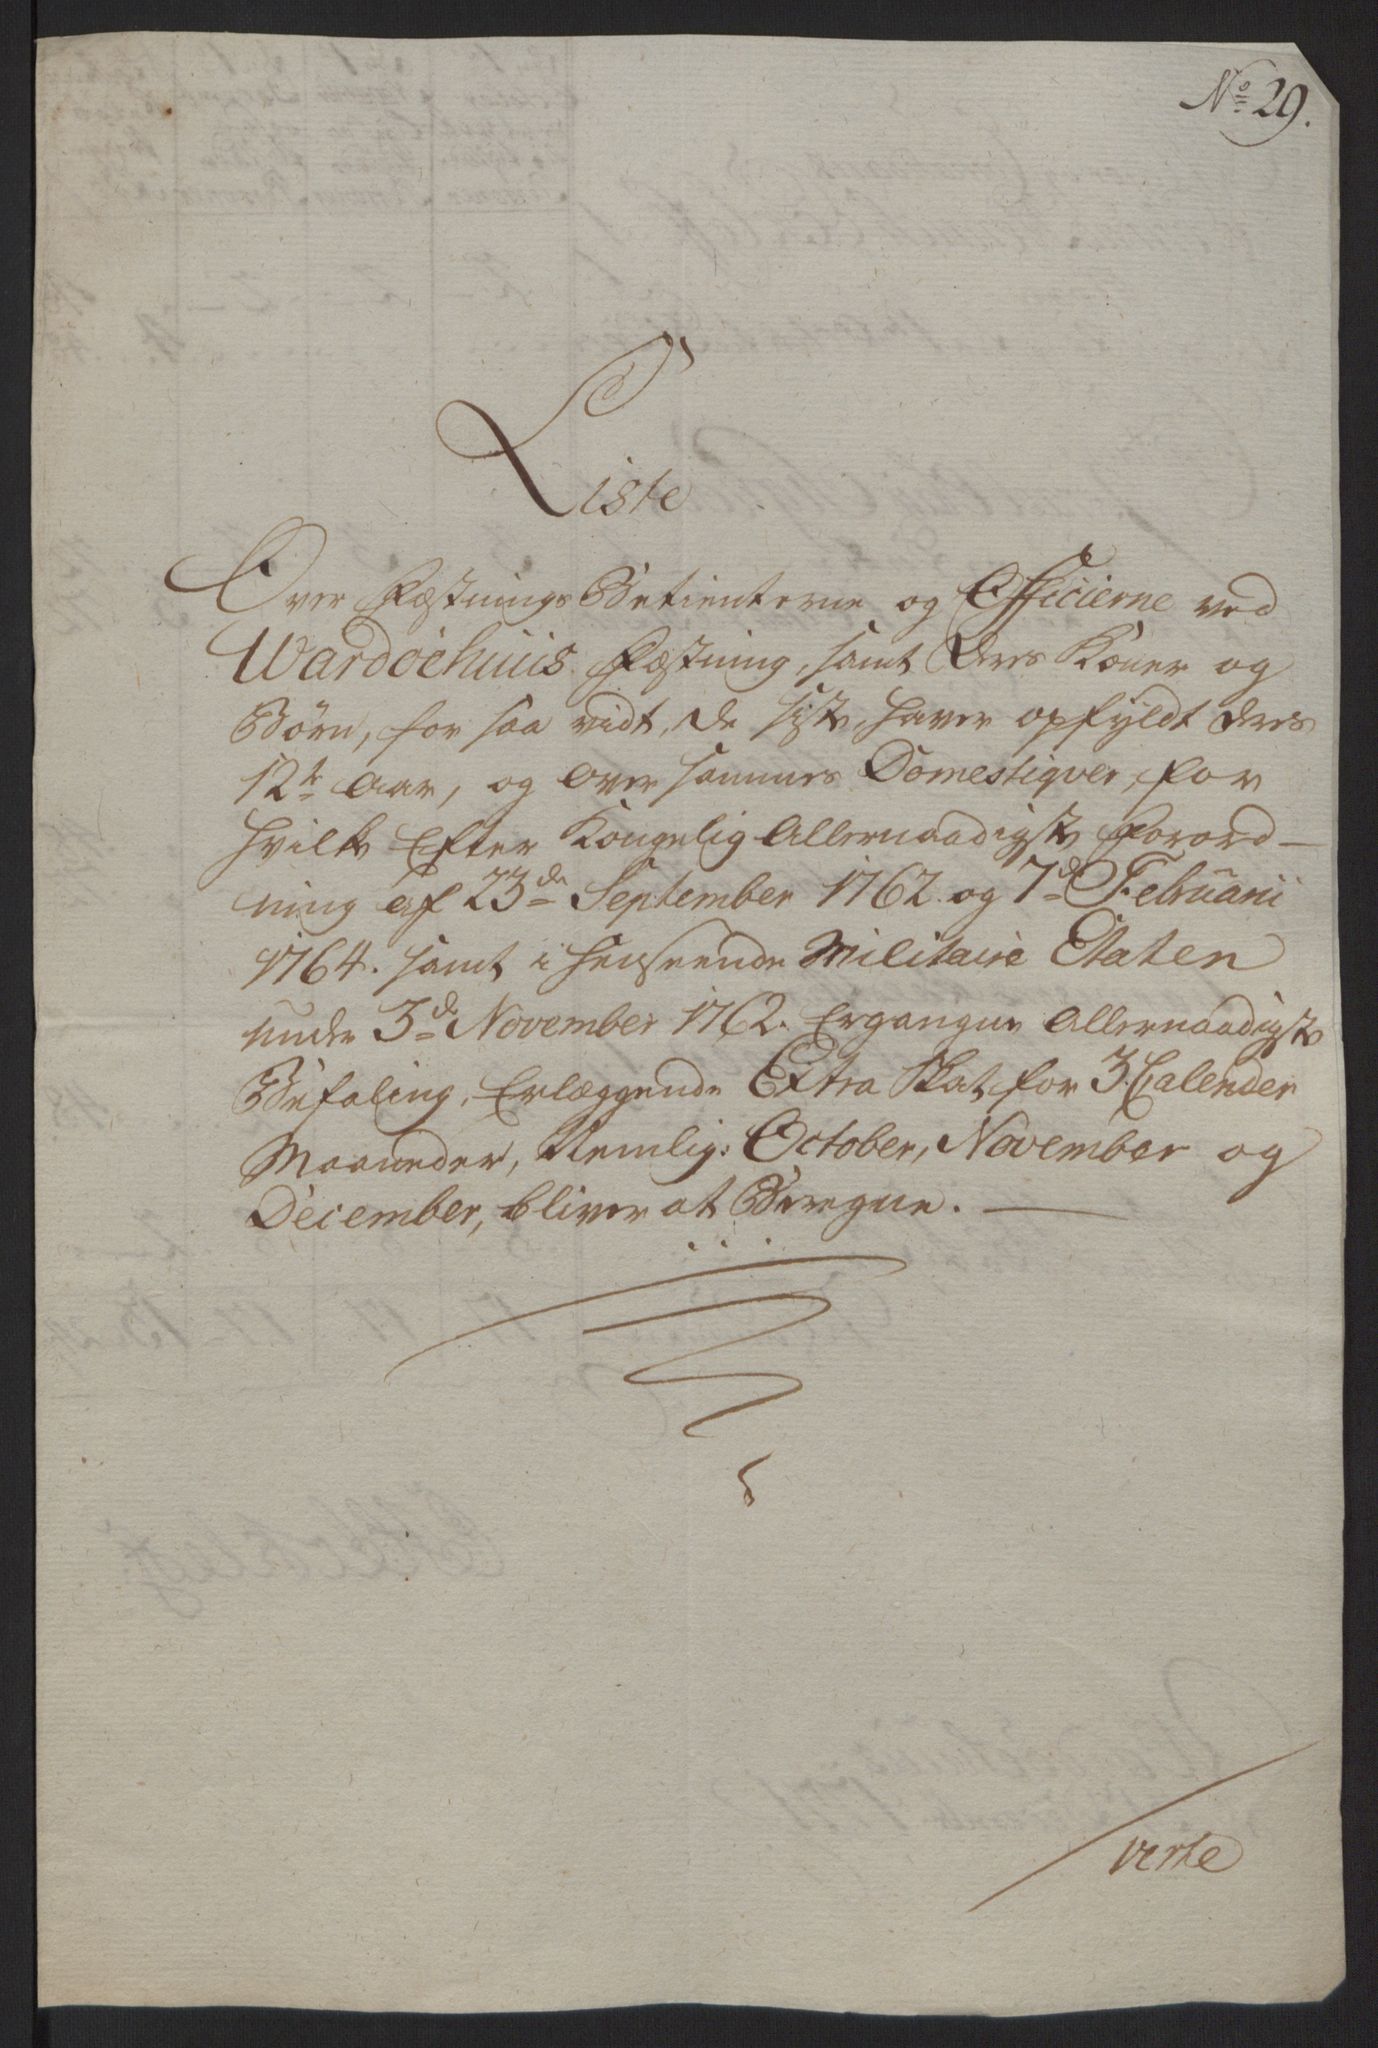 No 29.
Liste
Over Fæstnings Betienterne og Officierne ved
Wardöehuus Fæstning, samt deres Koner og
Börn, for saa vidt, de sidste, haver opfyldt deres
12te Aar, og over sammes Domestiqver, for
hvilke Efter Kongelig Allernaadigste Forord-
ning af 23de September 1762. og 7de Februarii
1764. samt i henseende Militaire Etaten
under 3de November 1762. Ergangne Allernaadigste
Befaling, Erlæggende Extra Skat for 3 Calender
Maaneder, Nemlig: October, November og
December, bliver at Beregne.
verte